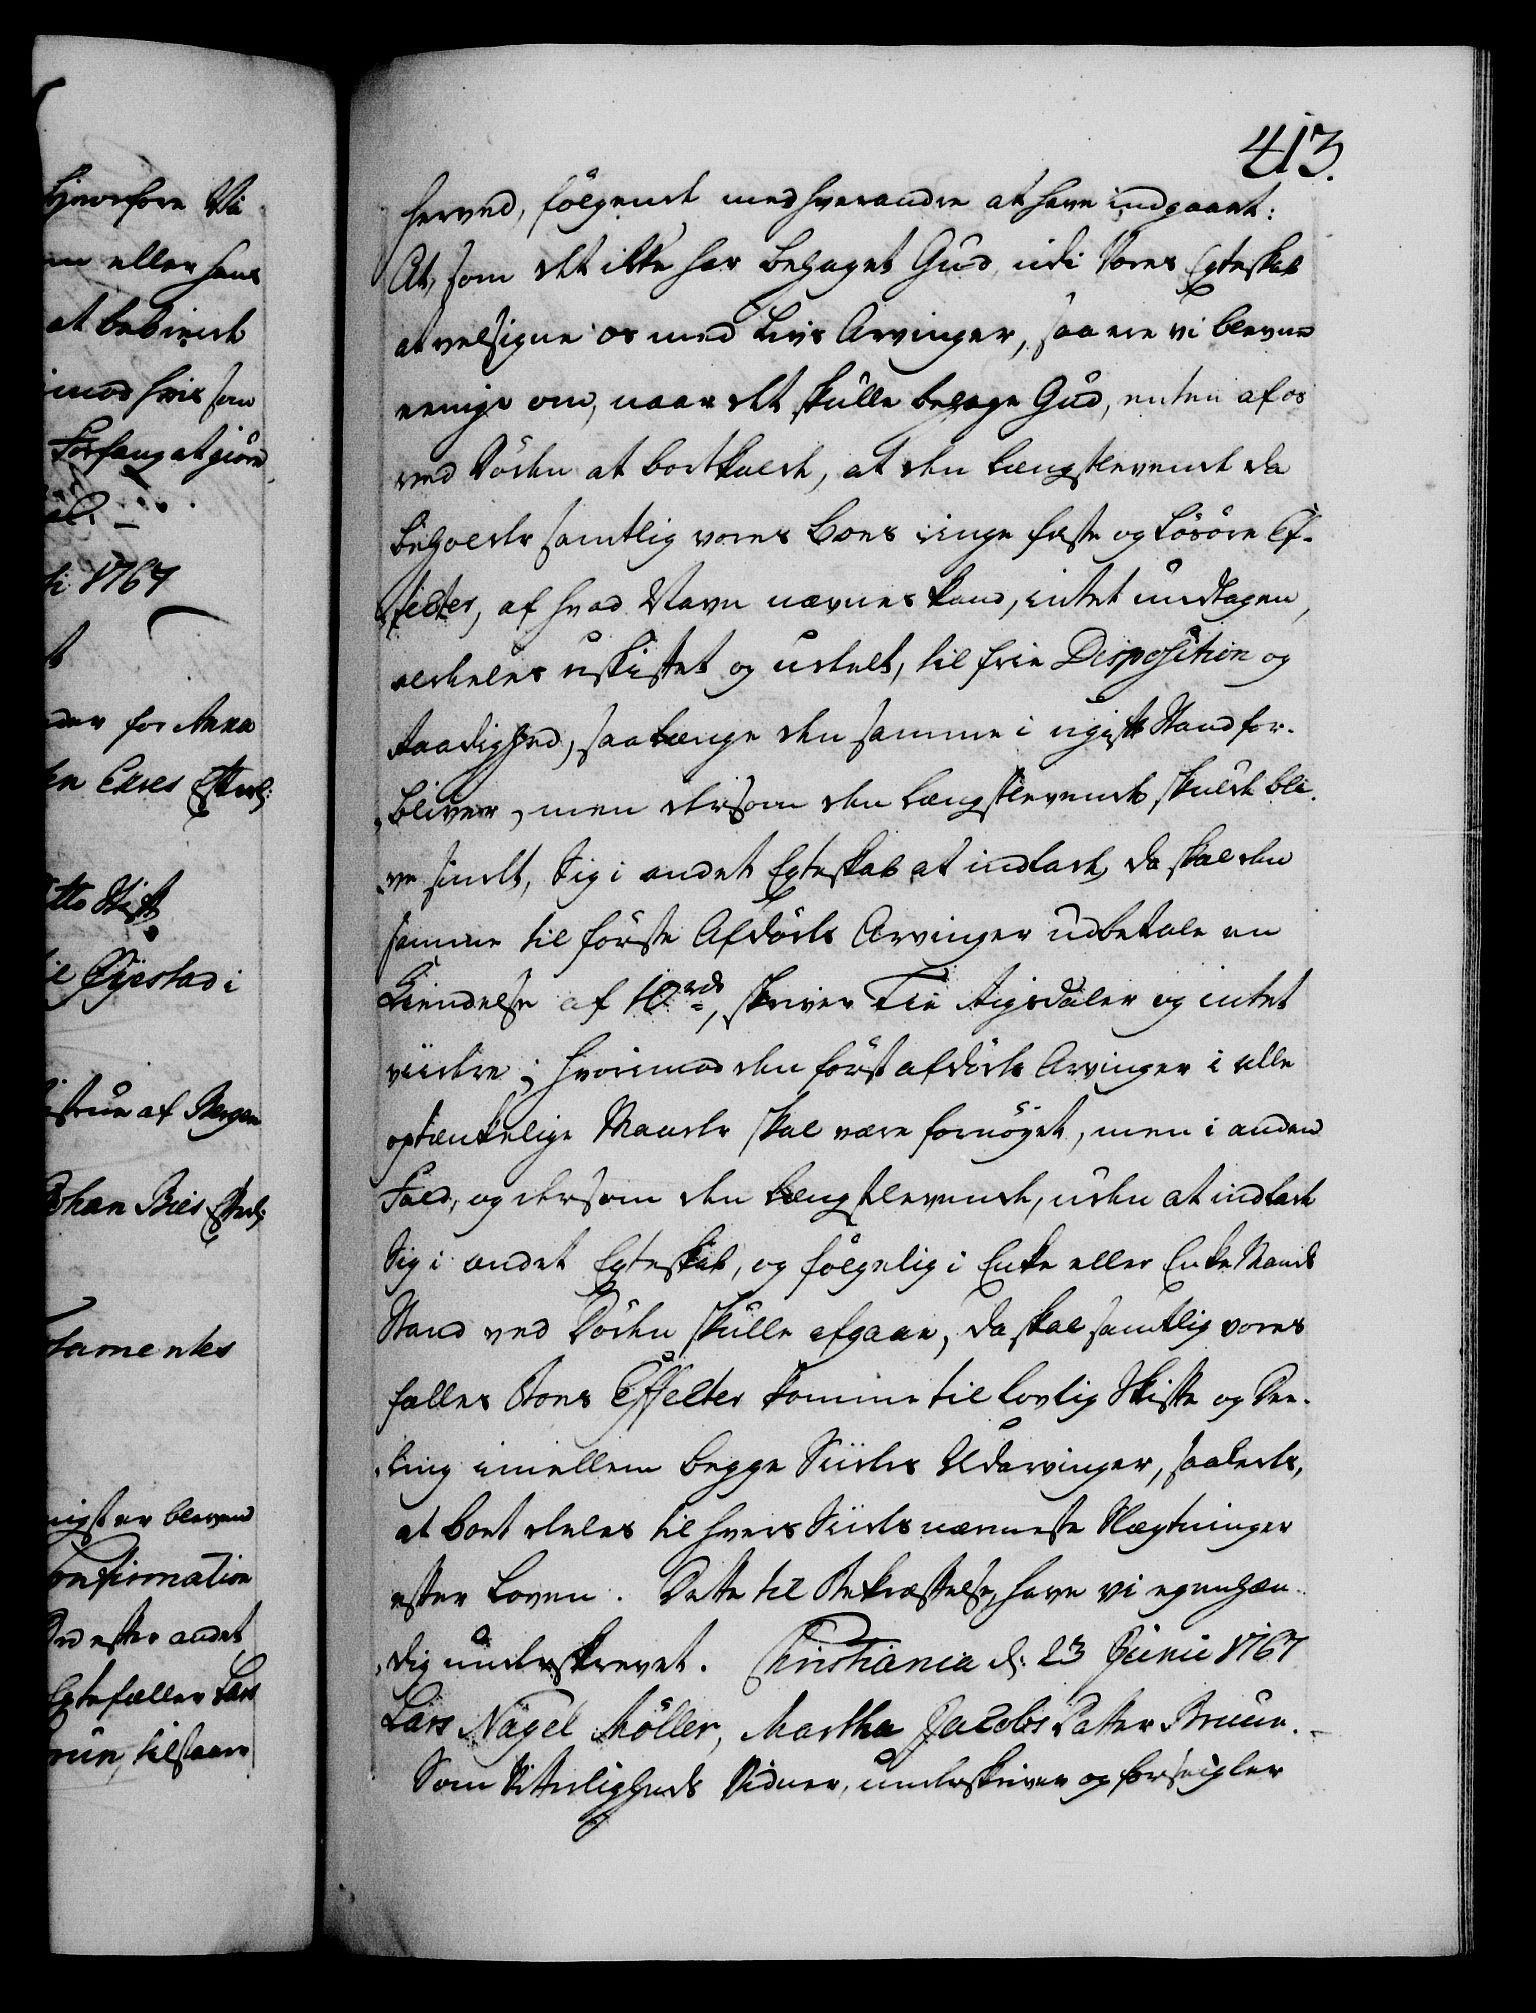 Hvorfore Vi
eller hans
at bebinde
imod hvis som
Forfang at giöre
1767
for Anna
Eÿestad i
af Bergen
Johan Bies
tamentes
bleven
Confirmation
Ord efter andet
Egtefæller Lars
tilstaar
413.
herved, fölgende med hverandre at have indgaaet:
At, som det ikke har behaget Gud, udi Vores Egteskab
at velsigne os med Livs Arvinger, saa ere vi blevne
eenige om, naar det skulle behage Gud, enten af os
ved Döden at bortkalde, at den længstlevende da
beholder samtlig vores Boes ringe faste og Lösöre Ef-
fecter, af hvad Navn nævnes kand, intet undtagen,
aldeeles uskiftet og udeelt, til frie Disposition og
Raadighed, saa længe den samme i ugift Stand for-
bliver, men dersom den længstlevende skulde bli-
ve sindet, Sig i andet Egteskab at indlade, da skal den
samme til förste Afdödes Arvinger udbetale en
Kiendelse af 10 rd, skriver Tie Rigsdaler og intet
viidere; hvorimod den först afdödes Arvinger i alle
optænkelige Maader skal være fornöyet, men i anden
Fald, og dersom den længstlevende, uden at indlade
Sig i andet Egteskab, og fölgelig i Enke eller Enke Mands
Stand ved Döden skulle afgaae, da skal samtlig vores
fælles Boes Effecter komme til lovlig Skifte og Dee-
ling imellem begge Siiders Udarvinger, saaledes,
at Boet deeles til hvers Siides nærmeste Slægtninger
efter Loven. Dette til Bekræftelse, have vi egenhæn-
dig underskrevet. Christiania d: 23 Junii 1767
Lars Nagel Möller, Martha Jacobs Datter Bruun.
Som Vitterligheds Vidner, underskriver og forseigler